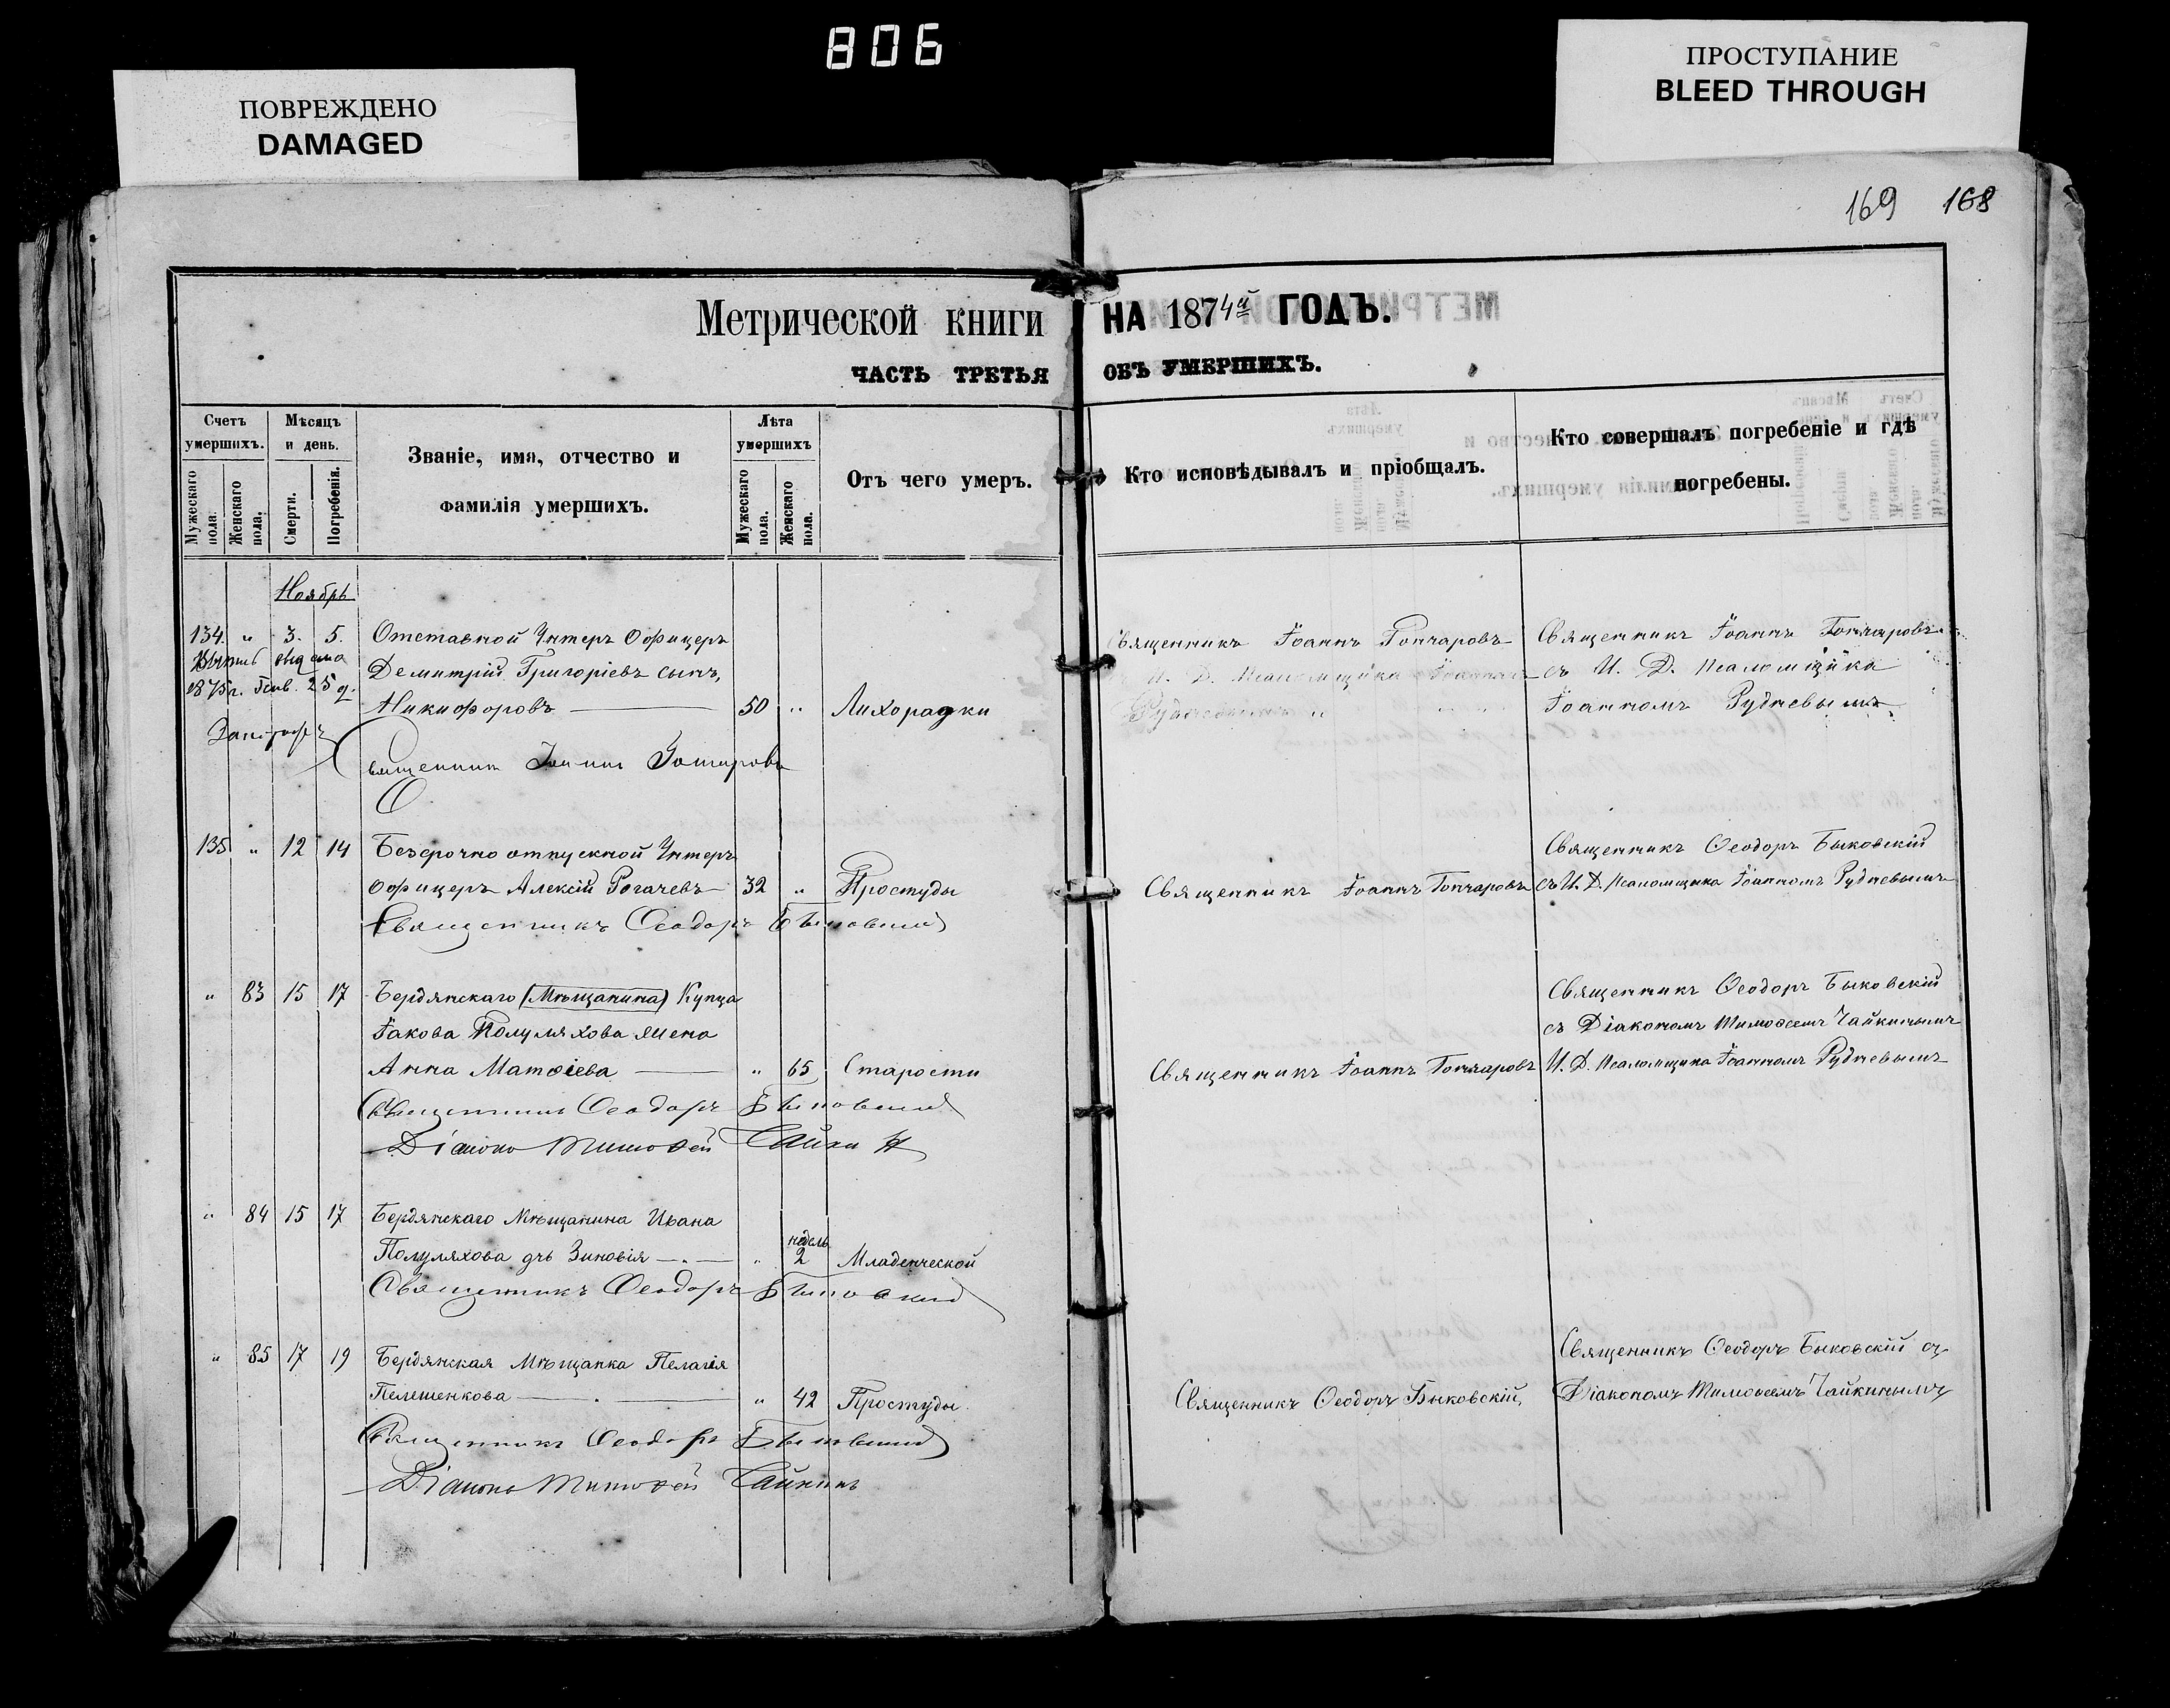 806
ПОВРЕЖДЕНО
DAMAGED
ПРОСТУПАНИЕ
BLEED THROUGH
169 168
Метрической книги НА 1874й ГОДЪ.
ЧАСТЬ ТРЕТЬЯ ОБЪ УМЕРШИХЪ.
Счетъ умершихъ.
Мужескаго пола.
Женскаго пола.
Мѣсяцъ и день.
Смерти.
Погребенія.
Званіе, имя, отчество и
фамилія умершихъ.
Лѣта умершихъ
Мужескаго пола.
Женскаго пола.
Отъ чего умеръ.
Кто исповѣдывалъ и пріобщалъ.
Кто совершалъ погребеніе и гдѣ
погребены.
Ноябрь
134. " 3. 5. Отставной Унтеръ Офицеръ
1875 г. Генв. 25 д.
Димитрій Григоріевъ сынъ,
Никифоровъ 50 " Лихорадки
Священникъ Іоаннъ Гончаровъ
Священникъ Іоаннъ Гончаровъ
И. Д. Псаломщика Іоанномъ
Рудневымъ
Священникъ Іоаннъ Гончаровъ
съ И. Д. Псаломщика
Іоанномъ Рудневымъ
135 " 12 14 Безсрочно отпускной Унтеръ
Офицеръ Алексій Рогачевъ 32 " Простуды
Священникъ Ѳеодоръ Быковский
Священникъ Іоаннъ Гончаровъ
Священникъ Ѳеодоръ Быковскій
съ И. Д. Псаломщика Іоанномъ Рудневымъ
" 83 15 17 Бердянскаго (Мѣщанина) Купца
Іакова Полуляхова жена
Анна Матѳіева " 65 Старости
Священникъ Ѳеодоръ Быковский
Діаконъ Тимоѳей Чайкин
Священникъ Іоаннъ Гончаровъ
Священникъ Ѳеодоръ Быковскій
съ Діакономъ Тимоѳеемъ Чайкинымъ
И. Д. Псаломщика Іоанномъ Рудневымъ
" 84 15 17 Бердянскаго Мѣщанина Ивана
Полуляхова дчь Зиновія " недель 2 Младенческой
Священникъ Ѳеодоръ Быковский
" 85 17 19 Бердянская Мѣщанка Пелагія
Пелешенкова " 42 Простуды
Священникъ Ѳеодоръ Быковский
Діаконъ Тимоѳей Чайкинъ
Священникъ Ѳеодоръ Быковскій,
Священникъ Ѳеодоръ Быковскій съ
Діакономъ Тимоѳеемъ Чайкинымъ